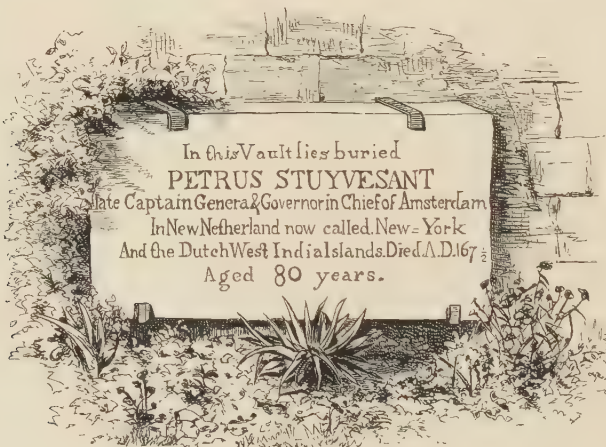 In this Vault lies buried
PETRUS STUYVESANT
late Captain General & Governor in Chief of Amsterdam
In New Netherland now called New=York
And the Dutch West India Islands. Died A.D. 167½
Aged 80 years.